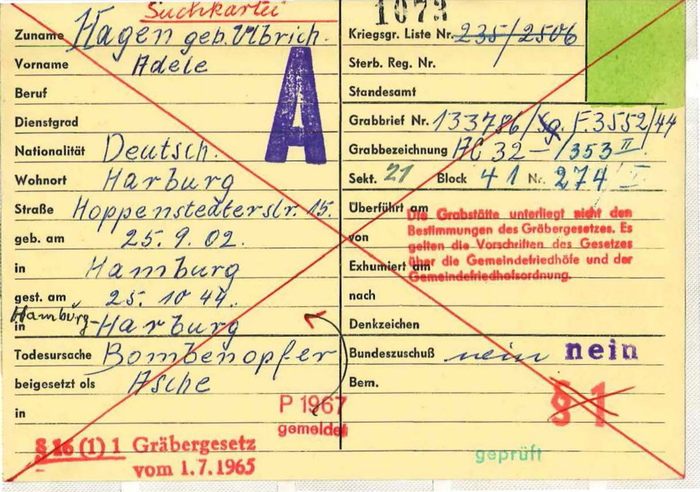 Suchkartei
1073
Zuname Hagen geb. Ulbrich.
Vorname Adele
Beruf
A
Dienstgrad
Nationalität Deutsch.
Wohnort Harburg
Straße Hoppenstedterstr. 15.
geb. am 25. 9. 02.
in Hamburg
gest. am 25. 10 44.
Hamburg-
in Harburg
Todesursache Bombenopfer
beigesetzt als Asche
in
P 1967
gemeldet
§ 16 (1) 1 Gräbergesetz
vom 1.7.1965
Kriegsgr. Liste Nr. 235/2506
Sterb. Reg. Nr.
Standesamt
Grabbrief Nr. 133786/Sg. F. 3552/44
Grabbezeichnung AC 32 – /353 II
Sekt. 21 Block 41 Nr. 274
Überführt am
Die Grabstätte unterliegt nicht den
Bestimmungen des Gräbergesetzes. Es
von
gelten die Vorschriften des Gesetzes
über die Gemeindefriedhöfe und der
Exhumiert am
Gemeindefriedhofsordnung.
nach
Denkzeichen
Bundeszuschuß nein nein
Bem.
§ 1
geprüft